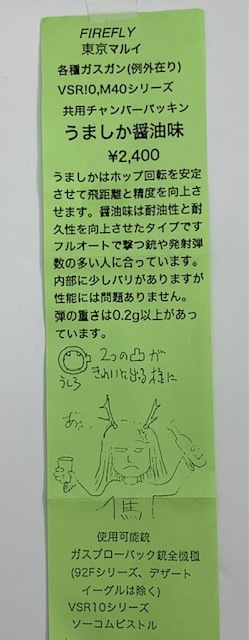 FIREFLY
東京マルイ
各種ガスガン(例外在り)
VSR!0,M40シリーズ
共用チャンバーパッキン
うましか醤油味
¥2,400
うましかはホップ回転を安定
させて飛距離と精度を向上さ
せます。醤油味は耐油性と耐
久性を向上させたタイプです
フルオートで撃つ銃や発射弾
数の多い人に合っています。
内部に少しバリがありますが
性能には問題ありません。
弾の重さは0.2g以上があっ
ています。
2つの凸が
うしろ
きれいに出る様に
使用可能銃
ガスブローバック銃全機種
(92Fシリーズ、デザート
イーグルは除く)
VSR10シリーズ
ソーコムピストル